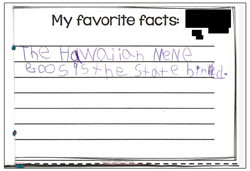 My favorite facts:
The Hawaiian Nene
Goos is the State bired.